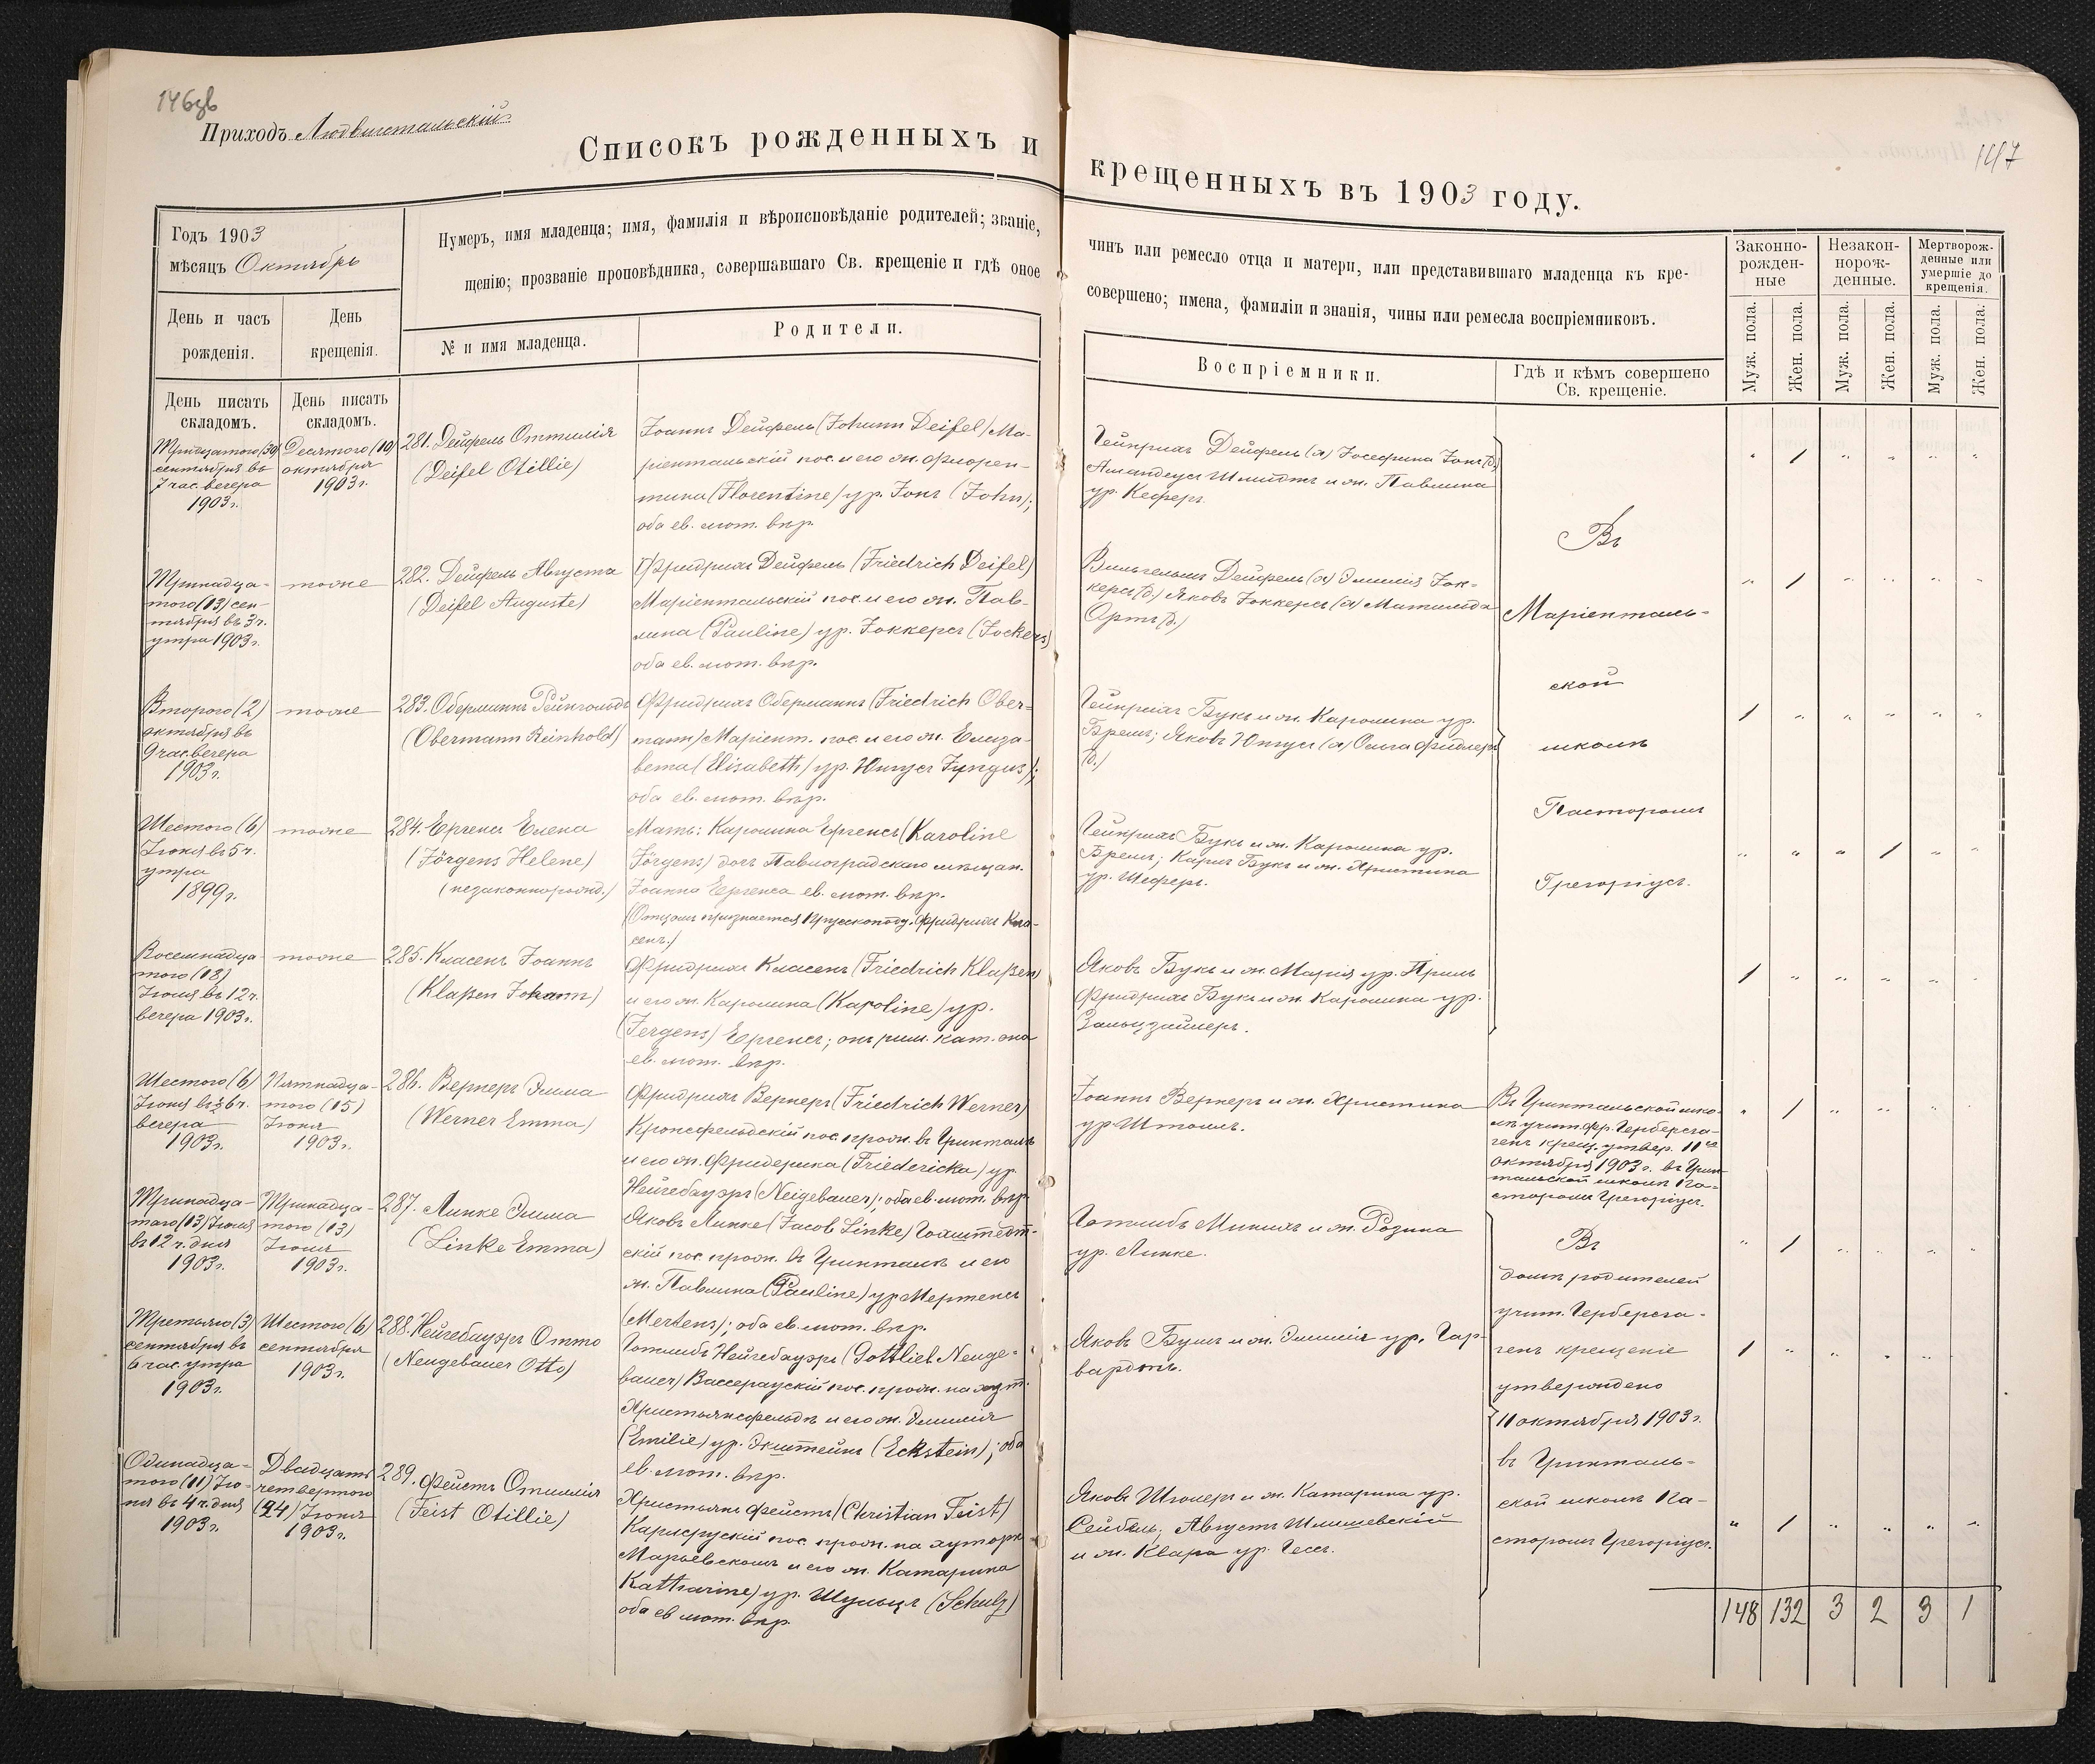 146зв
Приходъ Людвигстальскій
Списокъ рожденныхъ и
крещенныхъ въ 1903 году.
147
Годъ 1903
мѣсяцъ Октябрь
Нумеръ, имя младенца; имя, фамилія и вѣроисповѣданіе родителей; званіе,
щенію; прозваніе проповѣдника, совершавшаго Св. крещеніе и гдѣ оное
чинъ или ремесло отца и матери, или представившаго младенца къ кре-
совершено; имена, фамиліи и знанія, чины или ремесла воспріемниковъ.
День и часъ
рожденія.
День
крещенія.
№ и имя младенца.
Родители.
Воспріемники.
Гдѣ и кѣмъ совершено
Св. крещеніе.
Законно-
рожден-
ные
Незакон-
норож-
денные.
Мертворож-
денные или
умершіе до
крещенія.
Муж. пола.
Жен. пола.
Муж. пола.
Жен. пола.
Муж. пола.
Жен. пола.
День писать
складомъ.
День писать
складомъ.
Тридцатого (30)
сентября въ
7 час. вечера
1903 г.
Десятого (10)
октября
1903 г.
281. Дейфель Оттилія
(Deifel Otillie)
Іоаннъ Дейфель (Johann Deifel) Ма-
ріентальскій пос. и его ж. Флорен-
тина (Florentine) ур. Іонъ (John);
оба ев. лют. впр.
Гейнрихъ Дейфель (х) Іосефина Іонъ (д)
Амандеусъ Шмидтъ и ж. Павлина
ур. Кеферъ.
" 1 " " " "
Тринадца-
того (13) сен-
тября въ 3 ч.
утра 1903 г.
тоже
282. Дейфель Августа
(Deifel Auguste)
Фридрихъ Дейфель (Friedrich Deifel)
Маріентальскій пос. и его ж. Пав-
лина (Pauline) ур. Іоккерсъ (Jockers)
оба ев. лют. впр.
Вильгельмъ Дейфель (х) Эмилія Іок-
керсъ (д) Яковъ Іоккерсъ (х) Матильда
Ортъ (д.)
" 1 " " " "
Второго (2)
октября въ
9 час. вечера
1903 г.
тоже
283. Оберманнъ Рейнгольдъ
(Obermann Reinhold)
Фридрихъ Оберманнъ (Friedrich Ober-
mann) Маріент. пос. и его ж. Елиза-
вета (Elisabeth) ур. Юнгусъ Jungus);
оба ев. лют. впр.
Гейнрихъ Букъ и ж. Каролина ур.
Бремъ; Яковъ Юнгусъ (х) Ольга Фидлеръ
(д.)
1 " " " " "
Шестого (6)
Іюня въ 5 ч.
утра
1899 г.
тоже
284. Ергенсъ Елена
(Jörgens Helene)
(незаконнорожд.)
Мать: Каролина Ергенсъ (Karoline
Jörgens) дочь Павлоградскаго мѣщан.
Іоанна Ергенса ев. лют. впр.
(Отцомъ признается Прускоподд. Фридрихъ Кла-
сенъ.)
Гейнрихъ Букъ и ж. Каролина ур.
Бремъ; Карлъ Букъ и ж. Христина
ур. Шеферъ.
" " " 1 " "
Восемнадца-
того (18)
Іюля въ 12 ч.
вечера 1903 г.
тоже
285. Класенъ Іоаннъ
(Klaßen Johann)
Фридрихъ Класенъ (Friedrich Klaßen)
и его ж. Каролина (Karoline) ур.
(Jergens) Ергенсъ; онъ рим. кат. она
ев. лют. впр.
Яковъ Букъ и ж. Марія ур. Приль
Фридрихъ Букъ и ж. Каролина ур.
Зальцзайлеръ.
1 " " " " "
Въ
Маріенталь-
ской
школѣ
Пасторомъ
Грегоріусъ.
Шестого (6)
Іюня въ ½ 6 ч.
вечера
1903 г.
Пятнадца-
того (15)
Іюня
1903 г.
286. Вернеръ Эмма
(Werner Emma)
Фридрихъ Вернеръ (Friedrich Werner)
Кронсфельдскій пос. прож. въ Гринталь
и его ж. Фридерика (Friedericka) ур.
Нейгебауэръ (Neigebauer); оба ев. лют. впр.
Іоаннъ Вернеръ и ж. Христина
ур Штоль.
Въ Гринтальской шко-
лѣ учит. Фр. Герберсга-
генъ крещ. утвер. 11го
октября 1903 г. въ Грин-
тальской школѣ Па-
сторомъ Грегоріусъ.
" 1 " " " "
Тринадца-
того (13) Іюля
въ 12 ч. дня
1903 г.
Тринадца-
того (13)
Іюля
1903 г.
287. Линке Эмма
(Linke Emma)
Яковъ Линке (Jacob Linke) Гохштедт-
скій пос. прож. въ Гринталѣ и его
ж. Павлина (Pauline) ур Мертенсъ
(Mertens); оба ев. лют. впр.
Готлибъ Минихъ и ж. Розина
ур. Линке.
" 1 " " " "
Третьяго (3)
сентября въ
6 час. утра
1903 г.
Шестого (6)
сентября
1903 г.
288. Нейгебауэръ Отто
(Neugebauer Otto)
Готлибъ Нейгебауэръ (Gottlieb Neuge-
bauer) Вассераускій пос. прож. на хут.
Христьянсфельдъ и его ж. Эмилія
(Emilie) ур. Экштейнъ (Eckstein); оба
ев. лют. впр.
Яковъ Бушъ и ж. Эмилія ур. Гар-
вардтъ.
1 " " " " "
Одинадца-
того (11) Ію-
ня въ 4 ч. дня
1903 г.
Двадцать
четвертого
(24) Іюня
1903 г.
289. Фейстъ Отилія
(Feist Otillie)
Христьянъ Фейстъ (Christian Feist)
Карлсрускій пос. прож. на хуторѣ
Марьевскомъ и его ж. Катарина
Katharine) ур. Шульцъ (Schulz)
оба ев лют. впр.
Яковъ Шюлеръ и ж. Катарина ур.
Сейбель; Августъ Шлишевскій
и ж. Клара ур. Гессъ.
" 1 " " " "
Въ
домѣ родителей
учит. Герберсга-
генъ крещеніе
утверждено
11 октября 1903 г.
въ Гринталь-
ской школѣ Па-
сторомъ Грегоріусъ.
148 132 3 2 3 1